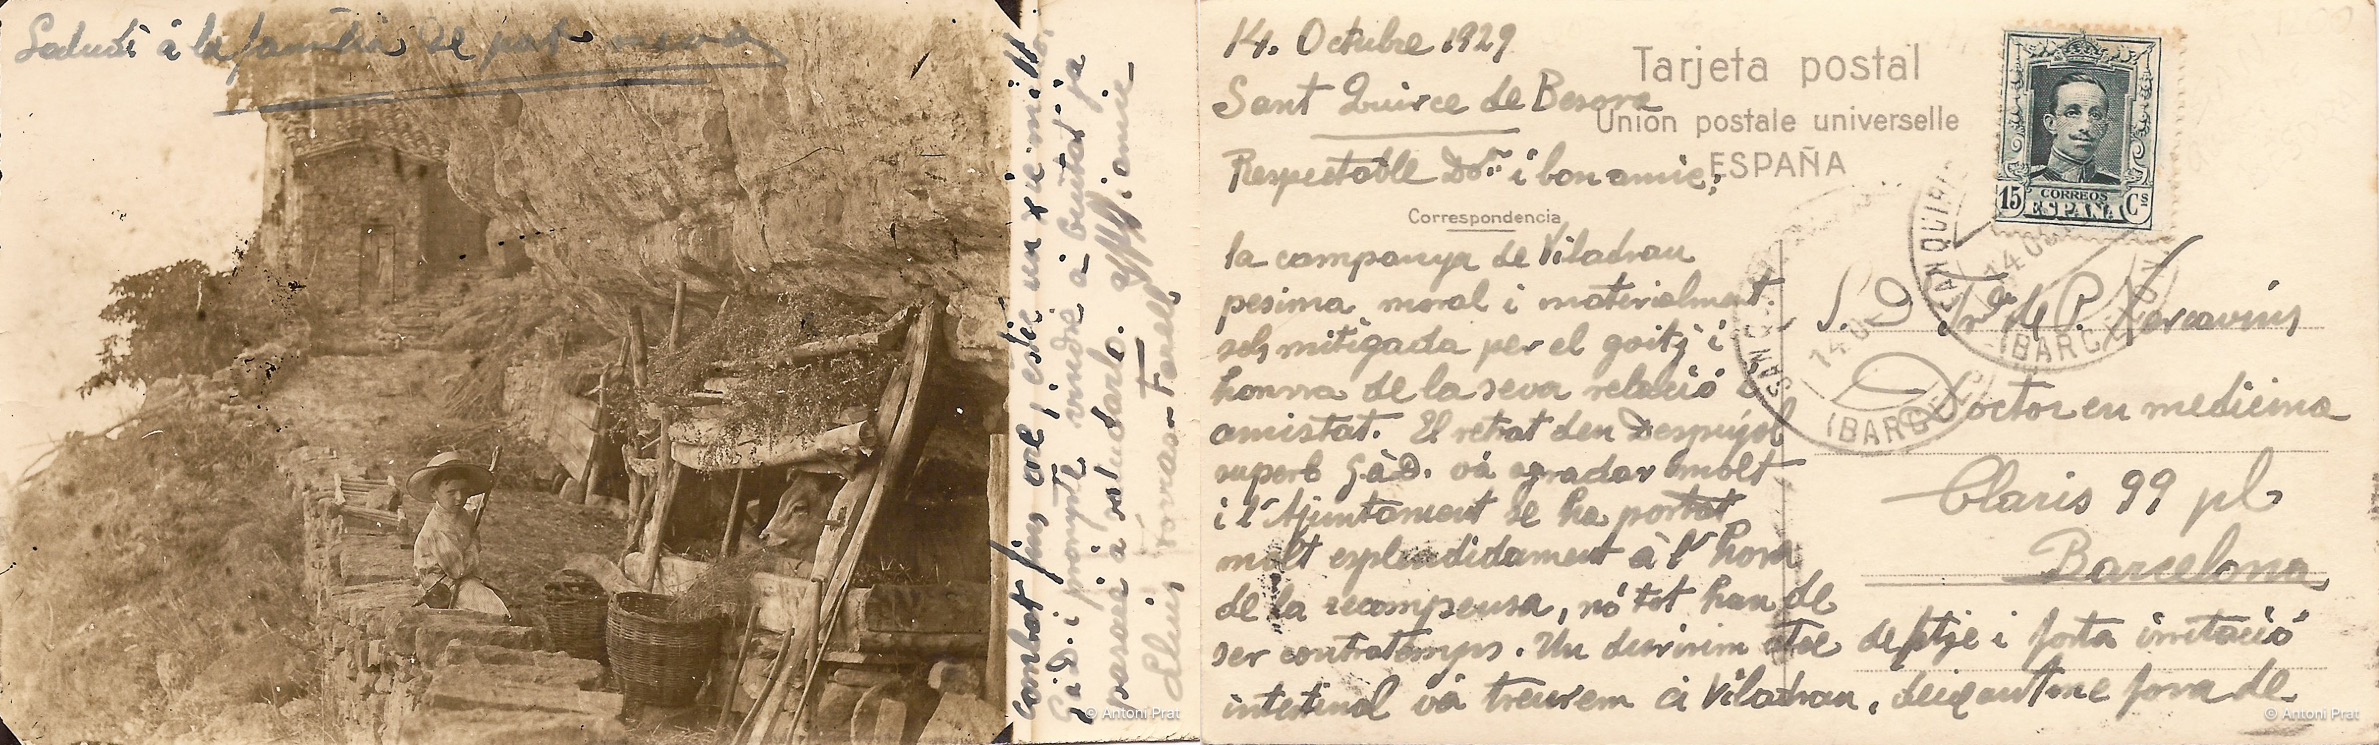 Saludi á la familia de part meva
combat fins ara, estic un xic millor.
G. à D. i promptе vindré á ciutat ja
passaré á saludarlo. affm. amic
Lluis Torras-Farell
14. Octubre 1929
Sant Quirce de Besora
Tarjeta postal
Unión postale universelle
ESPAÑA
Respectable Dor. i bon amic;
Correspondencia
15 CORREOS ESPAÑA Cs
la campanya de Viladrau
pesima moral i materialment
sols mitigada per el goitj i
honrra de la seva relació i
amistat. El retrat den Despujol
superb G. à D. vá agradar molt
i l'Ajuntament se ha portat
molt esplendidament á l'hora
de la recompensa, nó tot han de
ser contratemps. Un durirem atac de fetje i forta irritació
intestinal vá treurem a Viladrau, deixantme fora de
S. D. de P. Xercavins
Doctor en medicina
Claris 99 pl
Barcelona
14 OC
(BARCELONA)
© Antoni Prat
© Antoni Prat